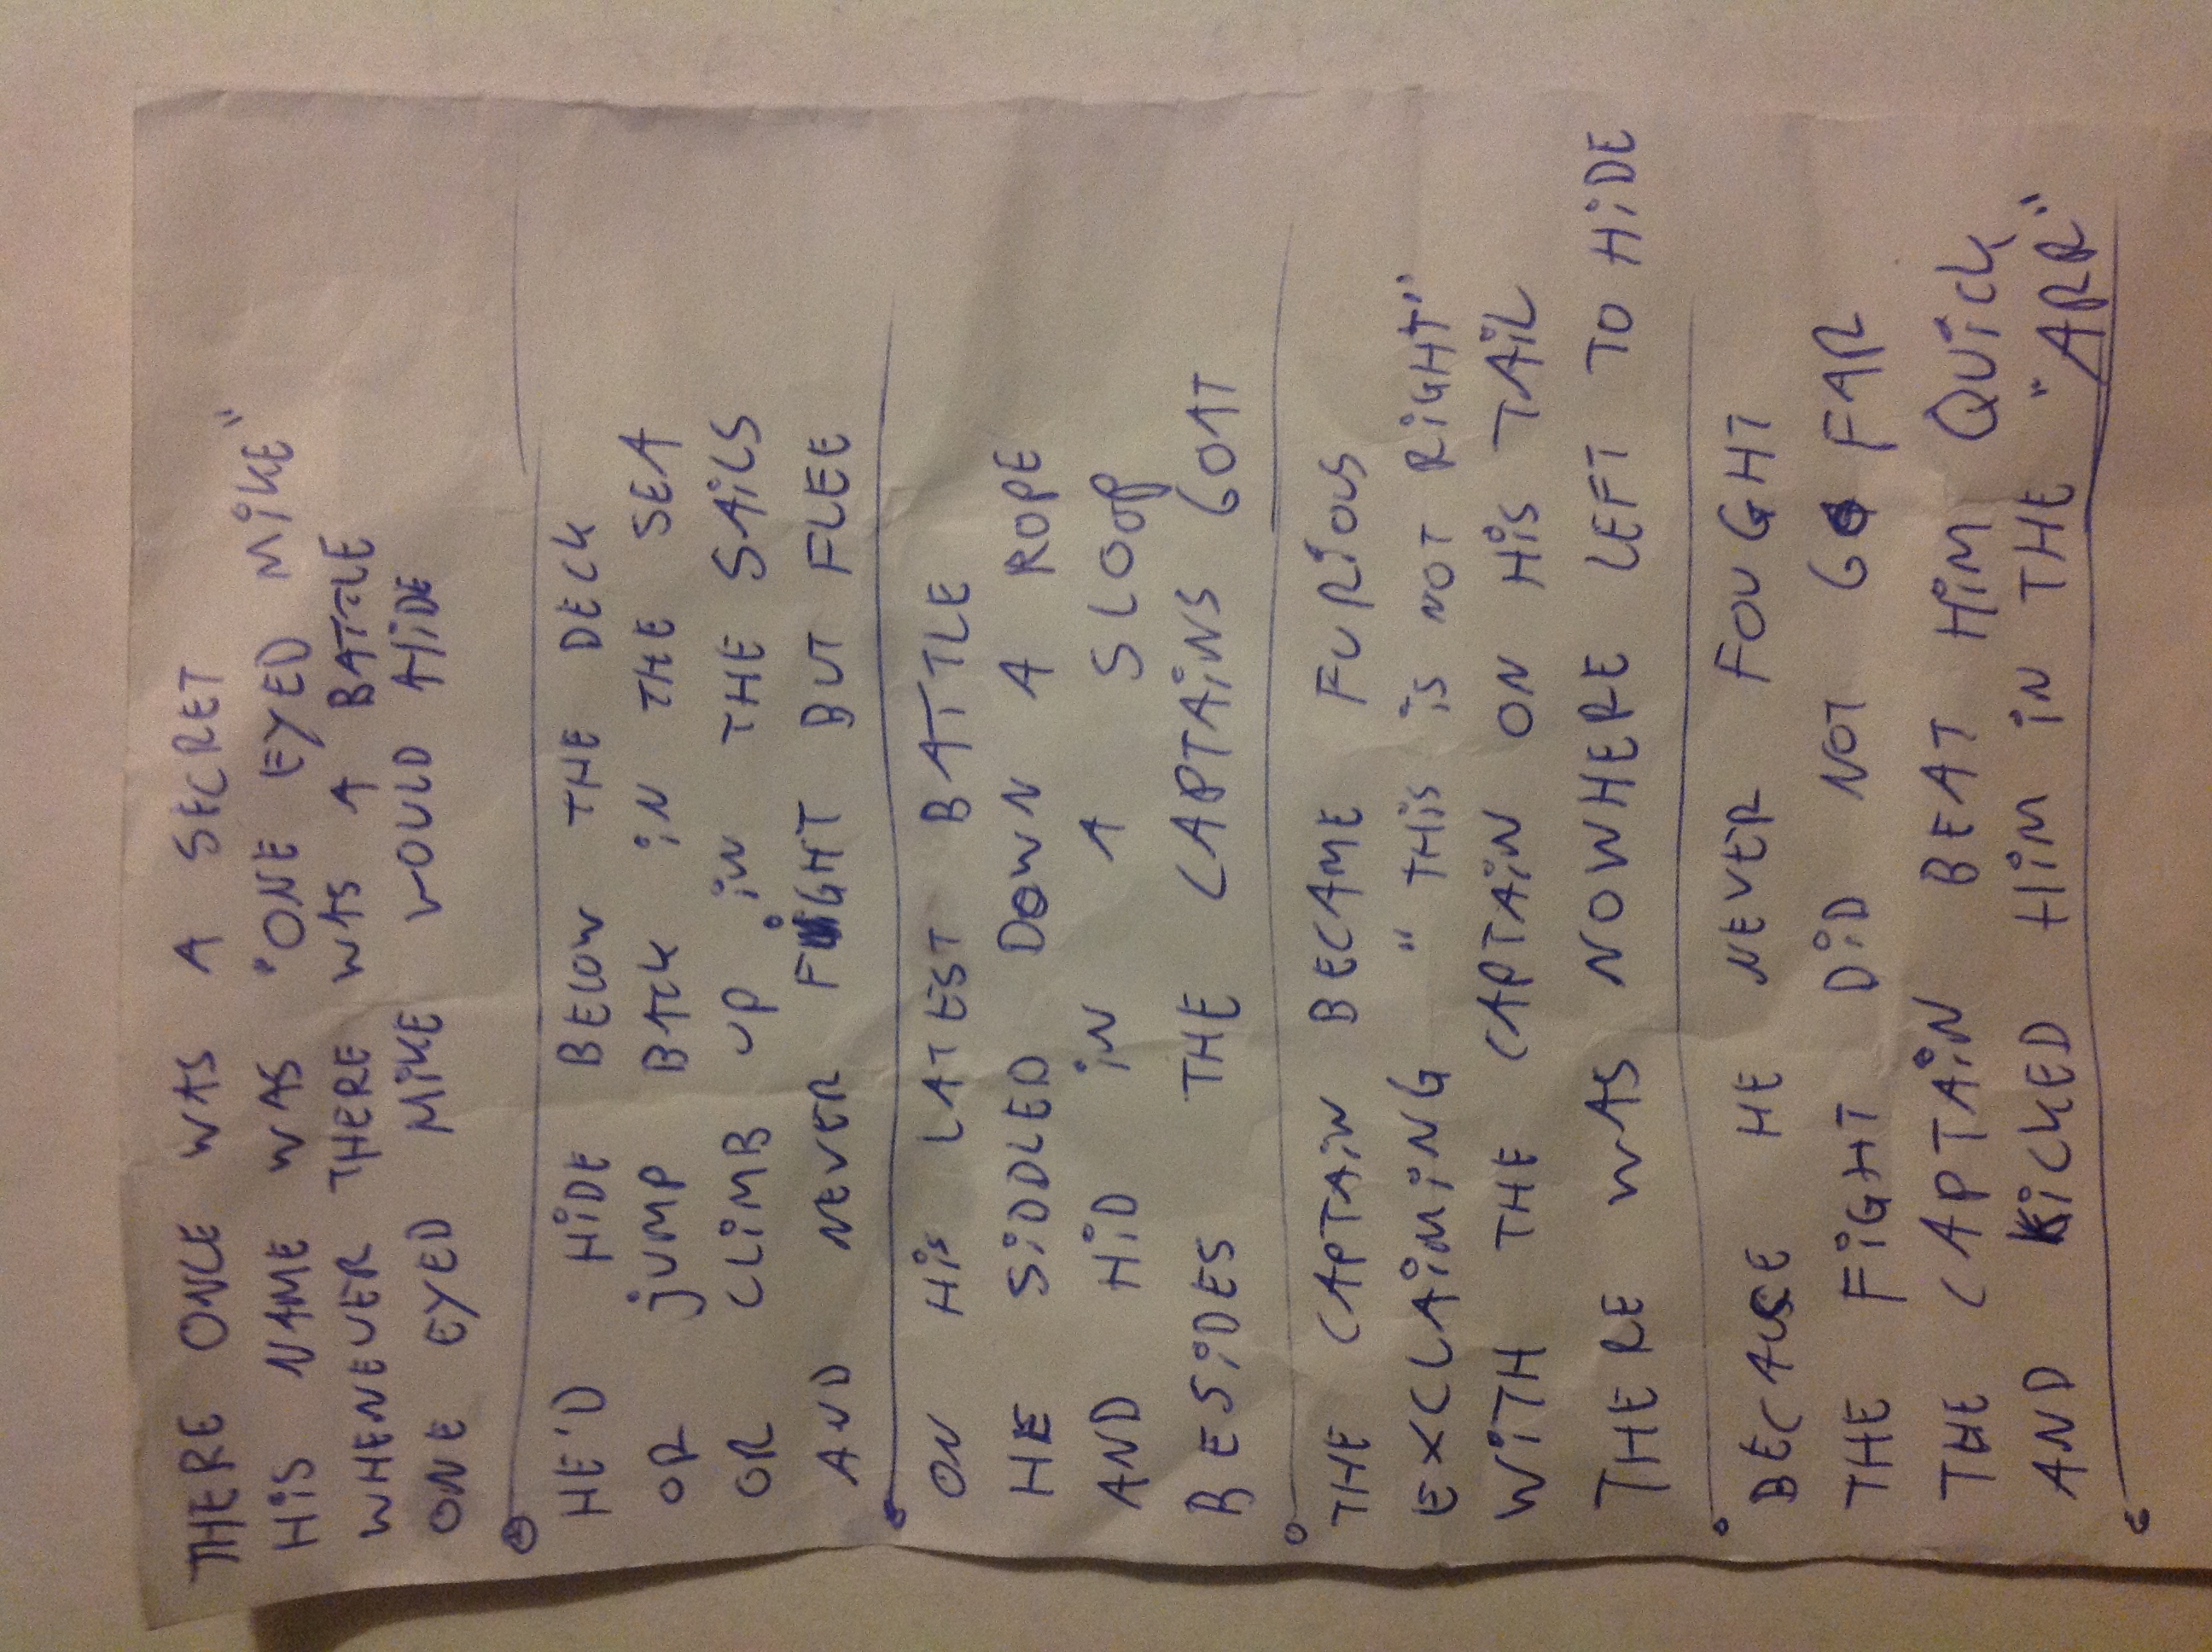 THERE ONCE WAS A SECRET
HiS NAME WAS "ONE EYED MiKE"
WHENEVER THERE WAS A BATTLE
ONE EYED MiKE WOULD HiDE
HE'D HiDE BELOW THE DECK
OR jUMP BACK iN THE SEA
OR CLiMB UP iN THE SAiLS
AND NEVER FiGHT BUT FLEE
ON HiS LATEST BATTLE
HE SiDDLED DOWN A ROPE
AND HiD iN A SLOOP
BESiDES THE CAPTAiNS GOAT
THE CAPTAiN BECAME FURiOUS
EXCLAiMiNG "THiS iS NOT RiGHT"
WiTH THE CAPTAiN ON HiS TAiL
THERE WAS NOWHERE LEFT TO HiDE
BECAUSE HE NEVER FOUGHT
THE FiGHT DiD NOT GO FAR
THE CAPTAiN BEAT HiM QUiCK
AND KiCKED HiM iN THE "ARR"